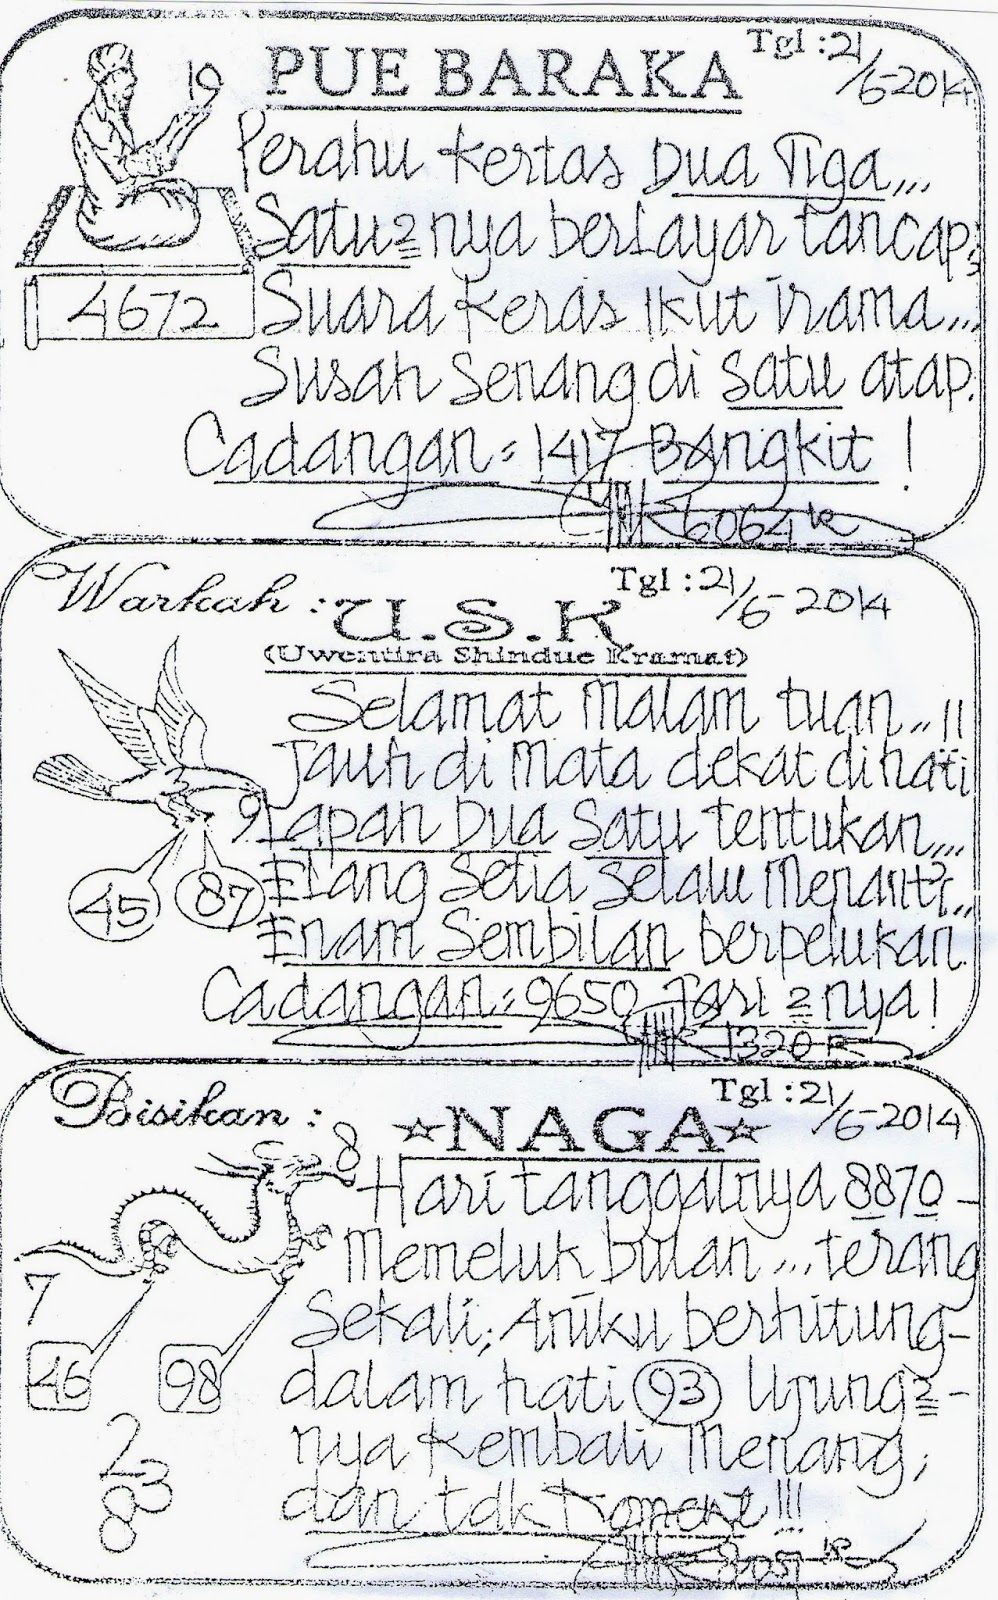 PUE BARAKA
Tgl : 21/6-2014
19
Perahu Kertas Dua Tiga,,,
Satu2nya berlayar tancap;
4672
Suara Keras Ikut Irama...
Susah Senang di satu atap.
Cadangan = 1417 Bangkit !
6064 R
Warkah :
Tgl : 21/6-2014
U.S.K
(Uwentira Shindue Kramat)
Selamat Malam tuan..!!
Jauh di Mata dekat dihati
9
Lapan Dua Satu tentukan,,,
45
87
Elang Setia Selalu Menanti,,
Enam Sembilan berpelukan.
Cadangan = 9650 Tari2nya!
1320 R
Bisikan :
Tgl : 21/6-2014
☆NAGA☆
8
Hari tanggalnya 8870-
Memeluk bulan,,,terang
7
Sekali; Aniku berhitung-
46
98
dalam hati 93 Ujung2-
nya Kembali Menang,
2
3
8
dan tdk Koment !!!